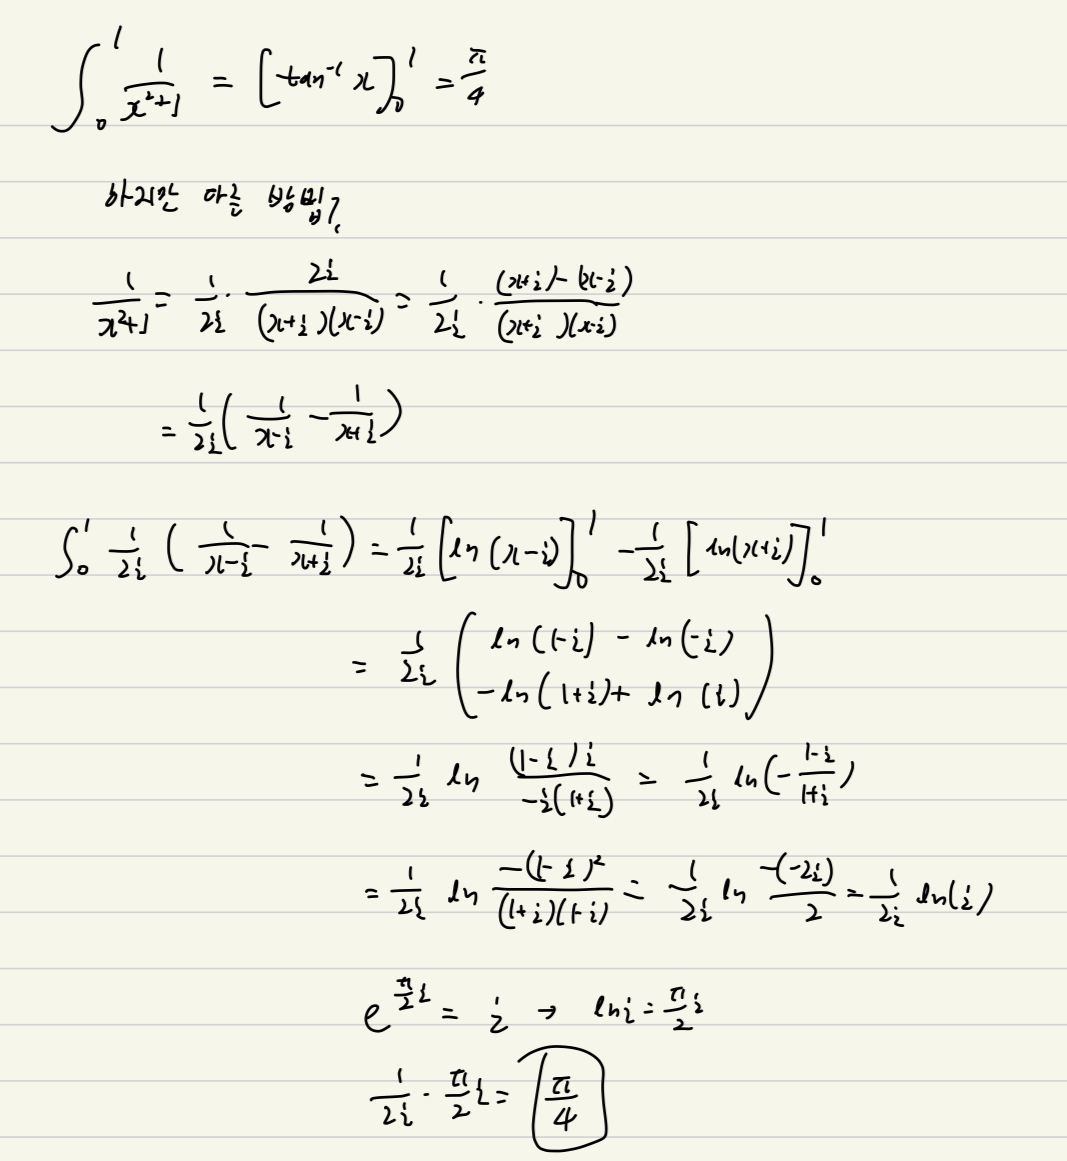 ∫₀¹ 1/(x²+1) = [tan⁻¹ x]₀¹ = π/4
하지만 다른 방법?
1/(x²+1) = 1/2i · 2i/((x+i)(x-i)) = 1/2i · ((x+i)-(x-i))/((x+i)(x-i))
= 1/2i (1/(x-i) - 1/(x+i))
∫₀¹ 1/2i (1/(x-i) - 1/(x+i)) = 1/2i [ln(x-i)]₀¹ - 1/2i [ln(x+i)]₀¹
= 1/2i (ln(1-i) - ln(-i)
-ln(1+i) + ln(i))
= 1/2i ln ((1-i)i)/(-i(1+i)) = 1/2i ln(-(1-i)/(1+i))
= 1/2i ln (-(1-i)²)/((1+i)(1-i)) = 1/2i ln (-(-2i))/2 = 1/2i ln(i)
e^(π/2 i) = i → ln i = π/2 i
1/2i · π/2 i = π/4